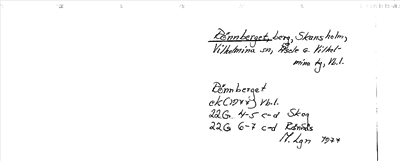 Rönnberget, berg, Skansholm,
Vilhelmina sn, Åsele o. Vilhel-
mina tg, Vb.l.
Rönnberget
ek (1944) Vb.l.
22G 4-5 c-d Skog
22G 6-7 c-d
M. Lgn 1974